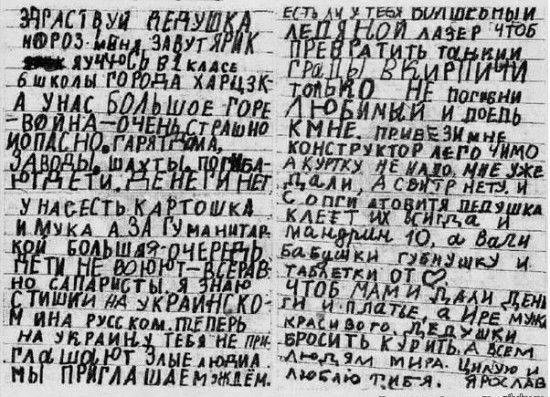 ЗДРАСТВУЙ ДЕДУШКА
МОРОЗ. МЕНЯ ЗАВУТ ЯРИК
Я УЧУСЬ В 2 КЛАСЕ
6 ШКОЛЫ ГОРОДА ХАРЦЗК-
А У НАС БОЛЬШОЕ ГОРЕ
-ВОЙНА-ОЧЕНЬ СТРАШНО
ИОПАСНО. ГАРЯТ ДОМА,
ЗАВОДЫ, ШАХТЫ, ПОГИБА-
ЮТ ДЕТИ. ДЕНЕГ И НЕТ
У НАС ЕСТЬ КАРТОШКА
И МУКА А ЗА ГУМАНИТАР-
КОЙ БОЛЬШАЯ ОЧЕРЕДЬ.
ДЕТИ НЕ ВОЮЮТ-ВСЕРАВ-
НО САПАРИСТЫ. Я ЗНАЮ
СТИШКИ НА УКРАИНСКО-
М ИНА РУССКОМ. ТЕПЕРЬ
НА УКРАИНУ ТЕБЯ НЕ ПРИ-
ГЛАШАЮТ ЗЛЫЕ ЛЮДИА
МЫ ПРИГЛАШАЕМ ЖДЁМ.
ЕСТЬ ЛИ У ТЕБЯ ВОЛШЕБНЫЙ
ЛЕДЯНОЙ ЛАЗЕР ЧТОБ
ПРЕВРАТИТЬ ТАНКИИ
ГРАДЫ В КИРПИЧИ
ТОЛЬКО НЕ ПОГИБНИ
ЛЮБИМЫЙ И ПОЕДЬ
КМНЕ. ПРИВЕЗИ МНЕ
КОНСТРУКТОР ЛЕГО ЧИМО
А КУРТКУ НЕ НАДО, МНЕ УЖЕ
ДАЛИ, А СВИТР НЕТУ, И
САПГИ АТОВИТЯ ДЕДУШКА
КЛЕЕТ ИХ ВСИГДА И
МАНДРИН 10, А ВАЛИ
БАБУШКИ ГУБНУШКУ И
ТАБЛЕТКИ ОТ ♡
ЧТОБ МАМИ ДАЛИ ДЕНЬ
ГИ И ПЛАТЬЕ, А ИРЕ МУЖА
КРАСИВОГО. ДЕДУШКИ
БРОСИТЬ КУРИТЬ. А ВСЕМ
ЛЮДЯМ МИРА. ЦИЛУЮ И
ЛЮБЛЮ ТИБЯ. ЯРОСЛАВ